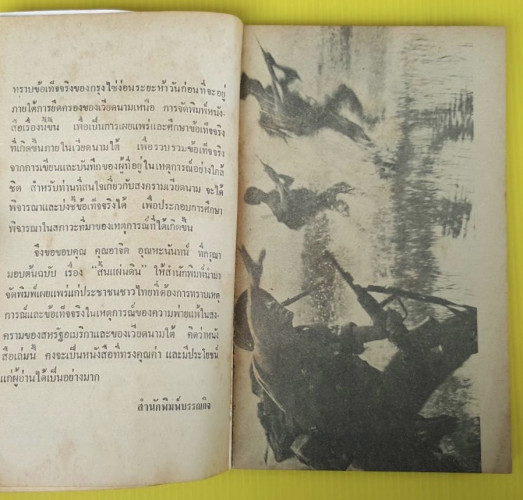 ทราบข้อเท็จจริงของกรุงไซ่ง่อนระยะห้าวันก่อนที่จะอยู่
ภายใต้การยึดครองของเวียดนามเหนือ การจัดพิมพ์หนัง-
สือเรื่องนี้ขึ้น เพื่อเป็นการเผยแพร่และศึกษาข้อเท็จจริง
ที่เกิดขึ้นภายในเวียดนามใต้ เพื่อรวบรวมข้อเท็จจริง
จากการเขียนและบันทึกของผู้ที่อยู่ในเหตุการณ์อย่างใกล้
ชิด สำหรับท่านที่สนใจเกี่ยวกับสงครามเวียดนาม จะได้
พิจารณาและบ่งชี้ข้อเท็จจริงได้ เพื่อประกอบการศึกษา
พิจารณาในสภาวะที่มาของเหตุการณ์ที่ได้เกิดขึ้น
จึงขอขอบคุณ คุณอาจิต อุณหะนันทน์ ที่กรุณา
มอบต้นฉบับ เรื่อง “สิ้นแผ่นดิน” ให้สำนักพิมพ์นำมา
จัดพิมพ์เผยแพร่แก่ประชาชนชาวไทยที่ต้องการทราบเหตุ
การณ์และข้อเท็จจริงในเหตุการณ์ของความพ่ายแพ้ในสง-
ครามของสหรัฐอเมริกาและของเวียดนามใต้ คิดว่าหนัง
สือเล่มนี้ คงจะเป็นหนังสือที่ทรงคุณค่า และมีประโยชน์
แก่ผู้อ่านได้เป็นอย่างมาก
สำนักพิมพ์บรรณกิจ